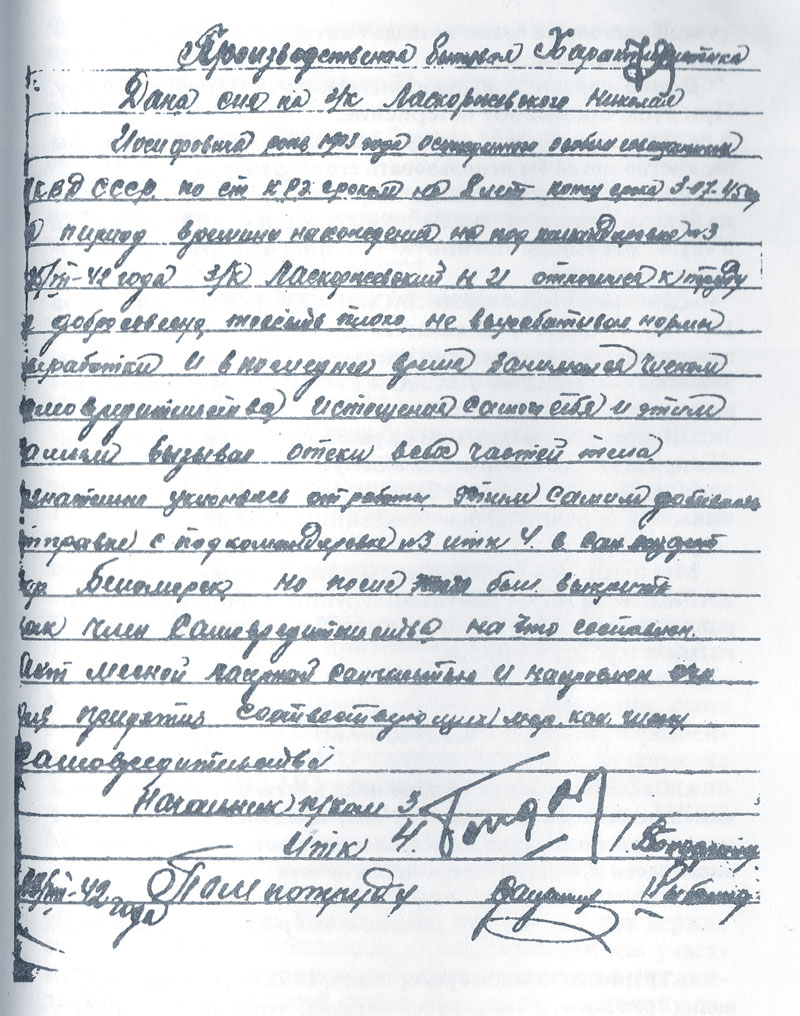 Производственая бытовая Характеристика
Дана сия на з/к Ласкоржевского Николая
Иосифовича рожд 1903 года осужденого особым совещанием
НКВД СССР по ст КРД сроком на 8 лет конец срока
период времини нахождения на под командировке №3
/III-42 года з/к Ласкоржевский Н И относился к труду
добросовесно, плохо, не вырабатывал нормы
выработки и в последнее время занимался членом
самовредительства истощения самаго себя и этим
самым вызывал отеки всех частей тела
уклонясь от работы этим самым добивался
отправке с под командировке №3 итк 4 в сан
Беломорск но после этого был выкрыт
как член Самовредительство на что составлен
акт месной лагерной санчастью и направлен
для придятия соответствующих мер, как член
самовредительства
Начальник п/ком 3
Итк 4
/III-42 года Пом по